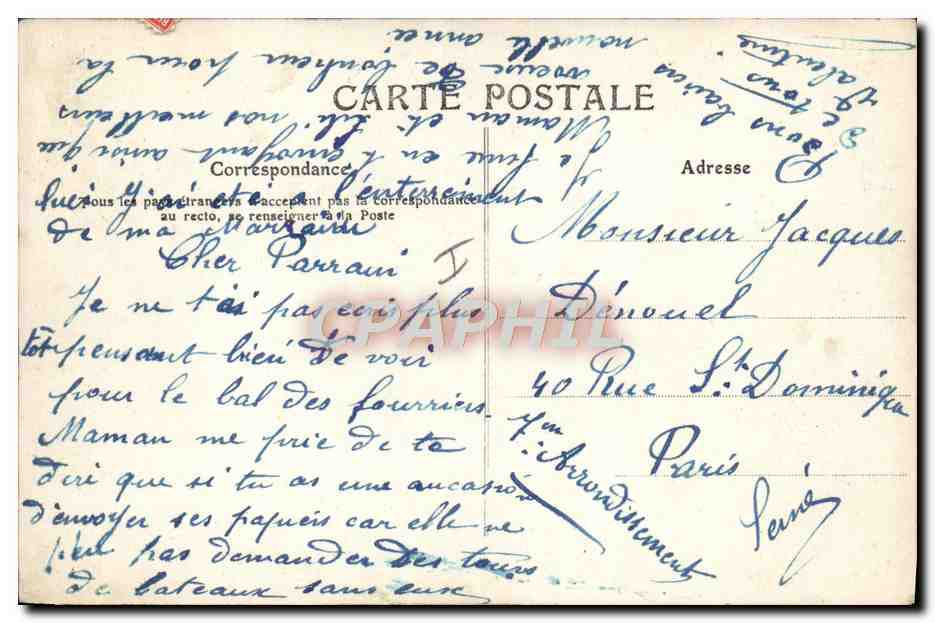 CARTE POSTALE
Correspondance
Tous les pays étrangers n'acceptent pas la correspondance
au recto, se renseigner à la Poste
Adresse
Cher Parrain
Je ne t'ai pas ecris plus
tot pensant bien te voir
pour le bal des fourriers.
Maman me prie de te
dire que si tu as une aucasion
d'envoyer ses papiers car elle ne
peu pas demander des tours
de bateaux sans eux
hier j'ai étée a l'enterrement
de ma Marraine
Je fini en t'envoyant ainsi que
Maman et Lili nos meilleurs
voeux de bonheur pour la
nouvelle année
Bons baisers
de tous
Valentine
Monsieur Jacques
Dénouel
40 Rue St. Dominique
Paris
7em Arrondissement
Seine
CPAPHIL